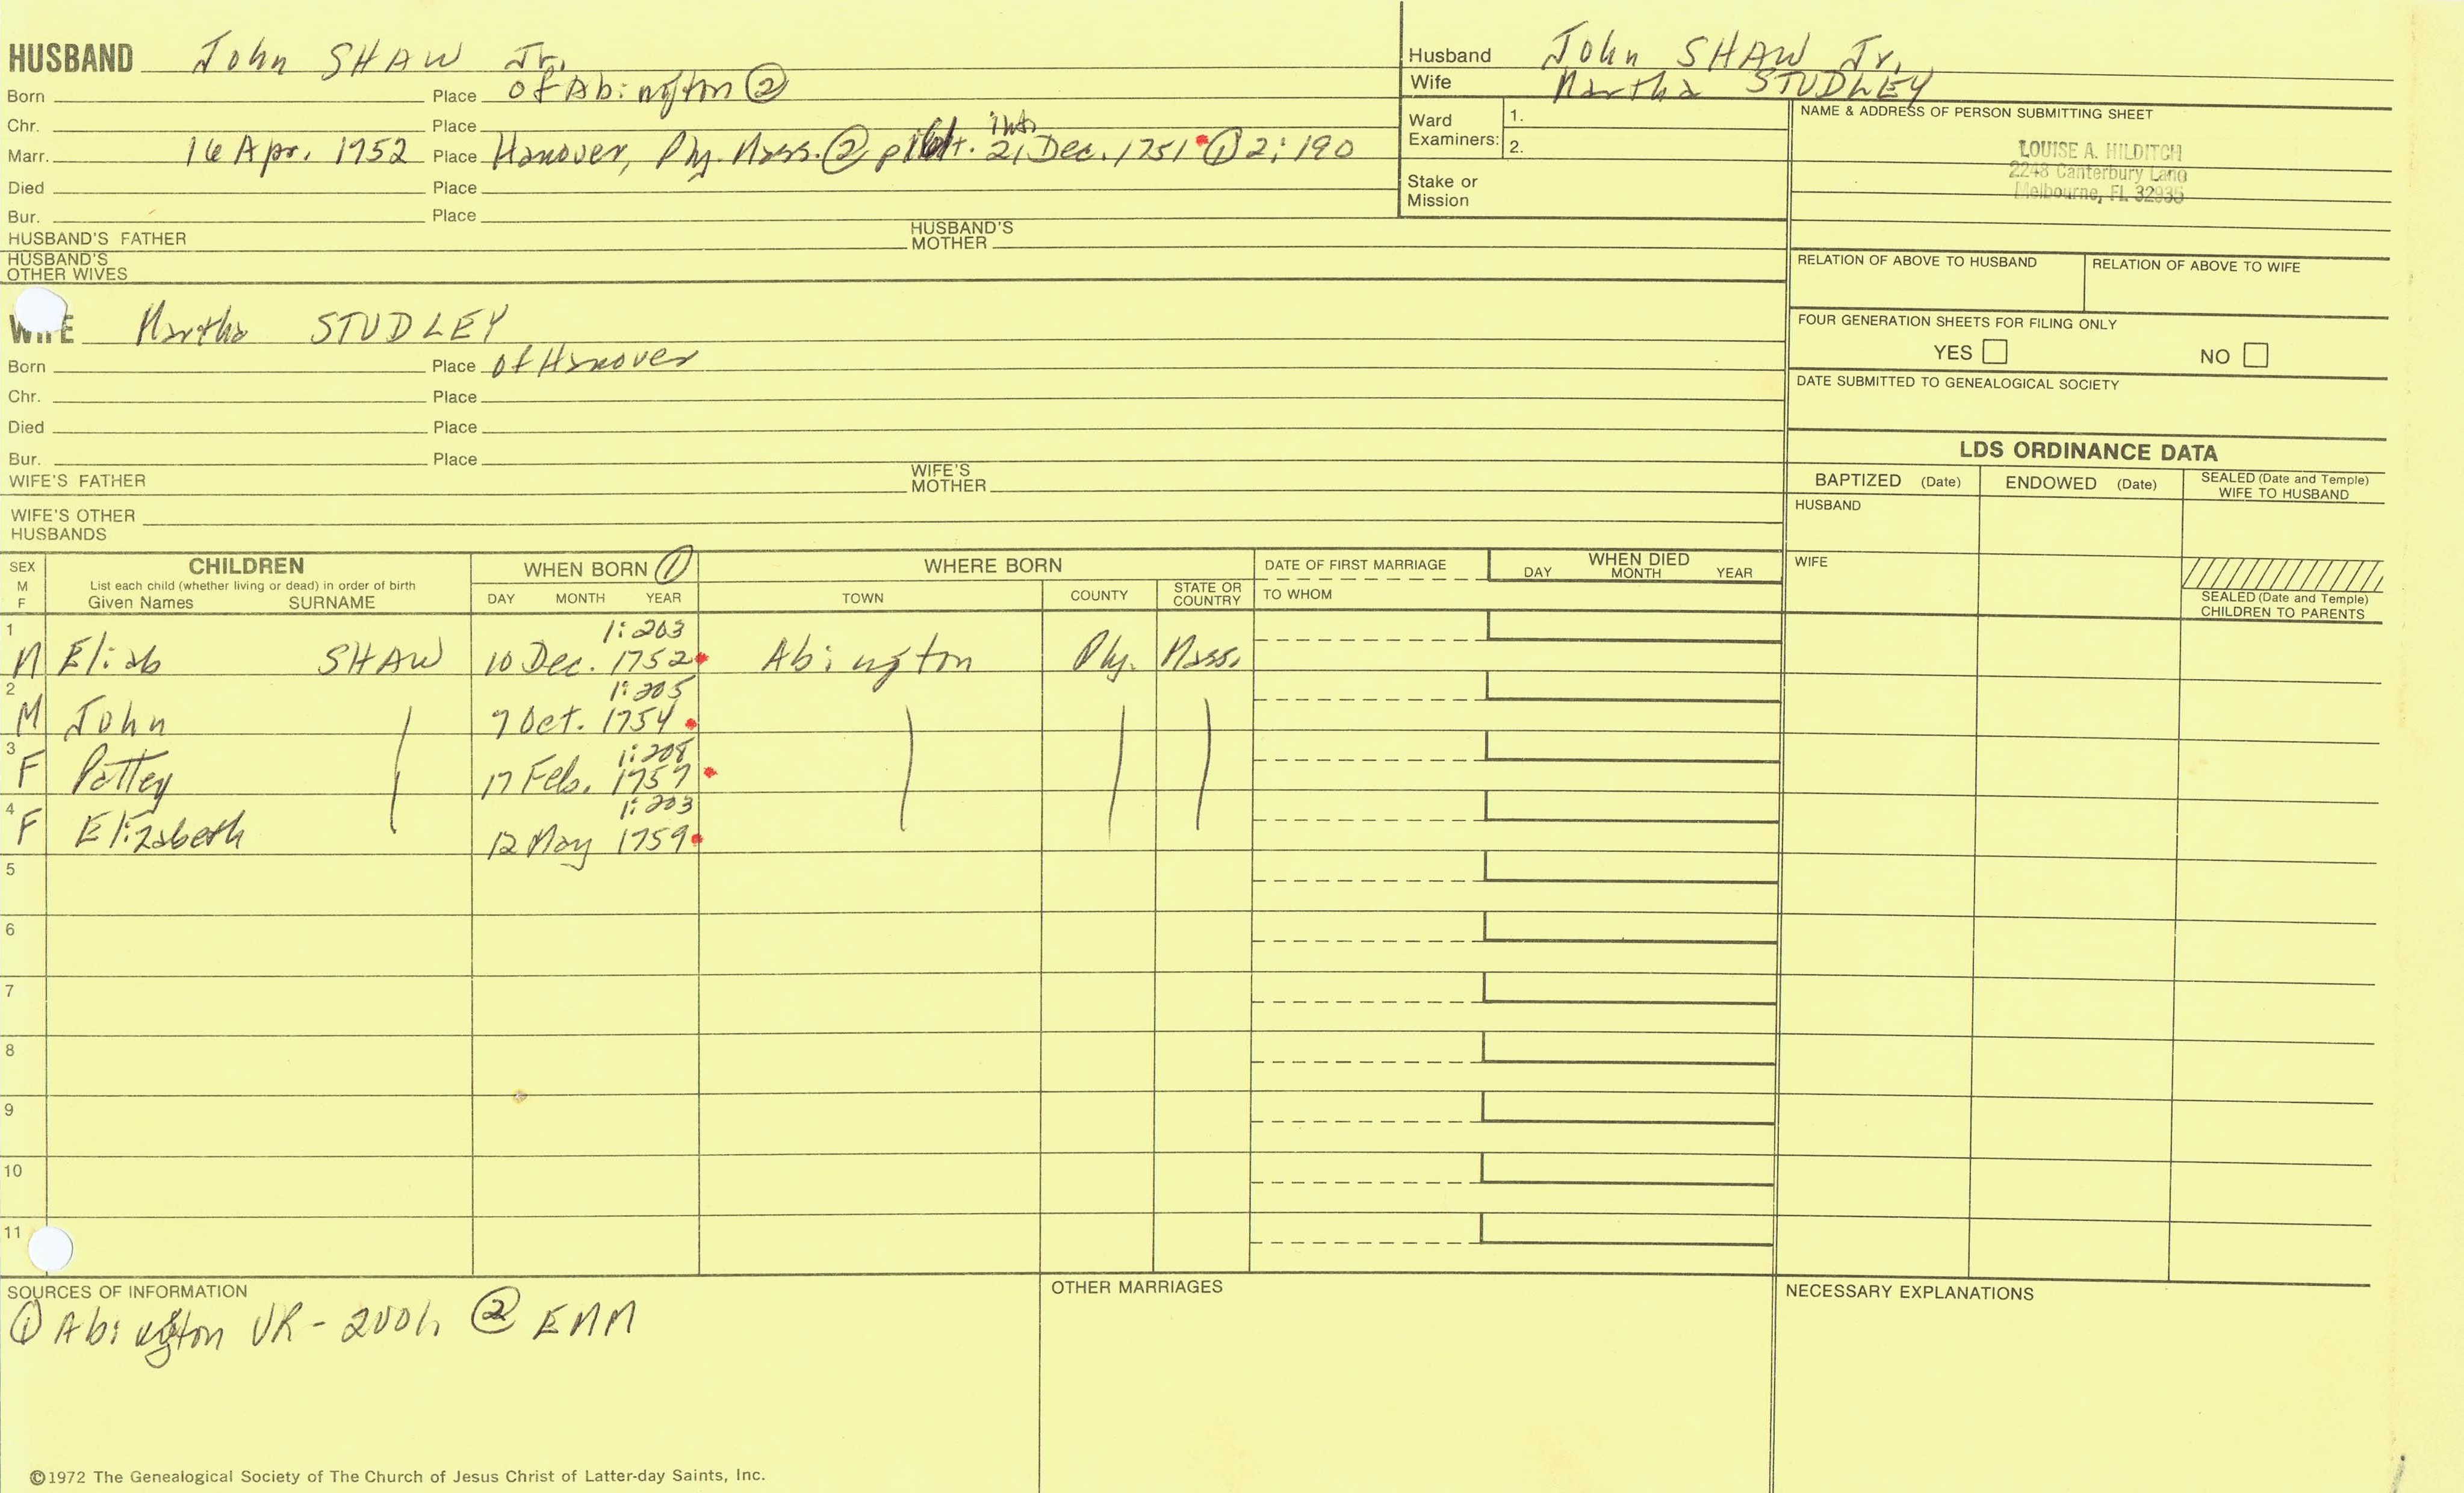 HUSBAND John SHAW Jr.
Born Place of Abington ②
Chr. Place
Marr. 16 Apr. 1752 Place Hanover, Ply. Mass. ② int. 21 Dec. 1751 ① 2:190
Died Place
Bur. Place
HUSBAND'S FATHER HUSBAND'S MOTHER
HUSBAND'S OTHER WIVES
Husband John SHAW Jr.
Wife Martha STUDLEY
Ward Examiners: 1.
2.
Stake or Mission
NAME & ADDRESS OF PERSON SUBMITTING SHEET
LOUISE A. HILDITCH
2248 Canterbury Lane
Melbourne, FL 32935
RELATION OF ABOVE TO HUSBAND RELATION OF ABOVE TO WIFE
FOUR GENERATION SHEETS FOR FILING ONLY
YES NO
DATE SUBMITTED TO GENEALOGICAL SOCIETY
WIFE Martha STUDLEY
Born Place of Hanover
Chr. Place
Died Place
Bur. Place
WIFE'S FATHER WIFE'S MOTHER
WIFE'S OTHER HUSBANDS
LDS ORDINANCE DATA
BAPTIZED (Date) ENDOWED (Date) SEALED (Date and Temple) WIFE TO HUSBAND
HUSBAND
WIFE
SEALED (Date and Temple) CHILDREN TO PARENTS
SEX M F CHILDREN WHEN BORN ① WHERE BORN DATE OF FIRST MARRIAGE WHEN DIED
List each child (whether living or dead) in order of birth
Given Names SURNAME DAY MONTH YEAR TOWN COUNTY STATE OR COUNTRY TO WHOM DAY MONTH YEAR
1 1:203
M Eliab SHAW 10 Dec. 1752 Abington Ply. Mass.
2 1:205
M John 7 Oct. 1754
3 1:208
F Pattey 17 Feb. 1757
4 1:203
F Elizabeth 12 May 1759
5
6
7
8
9
10
11
SOURCES OF INFORMATION OTHER MARRIAGES NECESSARY EXPLANATIONS
① Abington VR - ② EMM
©1972 The Genealogical Society of The Church of Jesus Christ of Latter-day Saints, Inc.